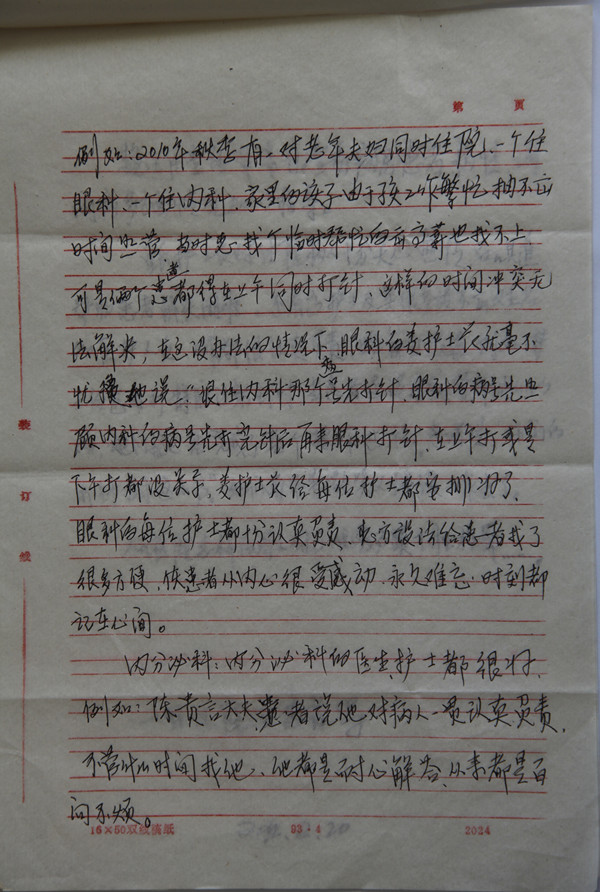 第 页
例如：2010年秋季有一对老年夫妇同时住院、一个住
眼科、一个住内科，家里的孩子由于孩工作繁忙抽不出
时间照管，当时想找个临时帮忙的后高薪也找不上
可是俩个患者都得在上午同时打针、这样的时间冲突无
法解决，在这没办法的情况下，眼科的姜护士长就毫不
犹豫地说：“很住内科那个病号先打针，眼科的病号先照
顾内科的病号先打完针后再来眼科打针，在上午打或是
下午打都没关系，姜护士长给每位护士都安排好了，
眼科的每位护士都十分认真负责，想方设法给患者找了
很多方便，使患者从内心很受感动，永久难忘，时刻都
记在心间。
内分泌科：内分泌科的医生、护士都很好，
例如：陈贵言大夫，患者说他对病人一贯认真负责，
不管什么时间找他、他都是耐心解答、从来都是百
问不烦。
16×50双线稿纸 93·4 2024
装 订 线